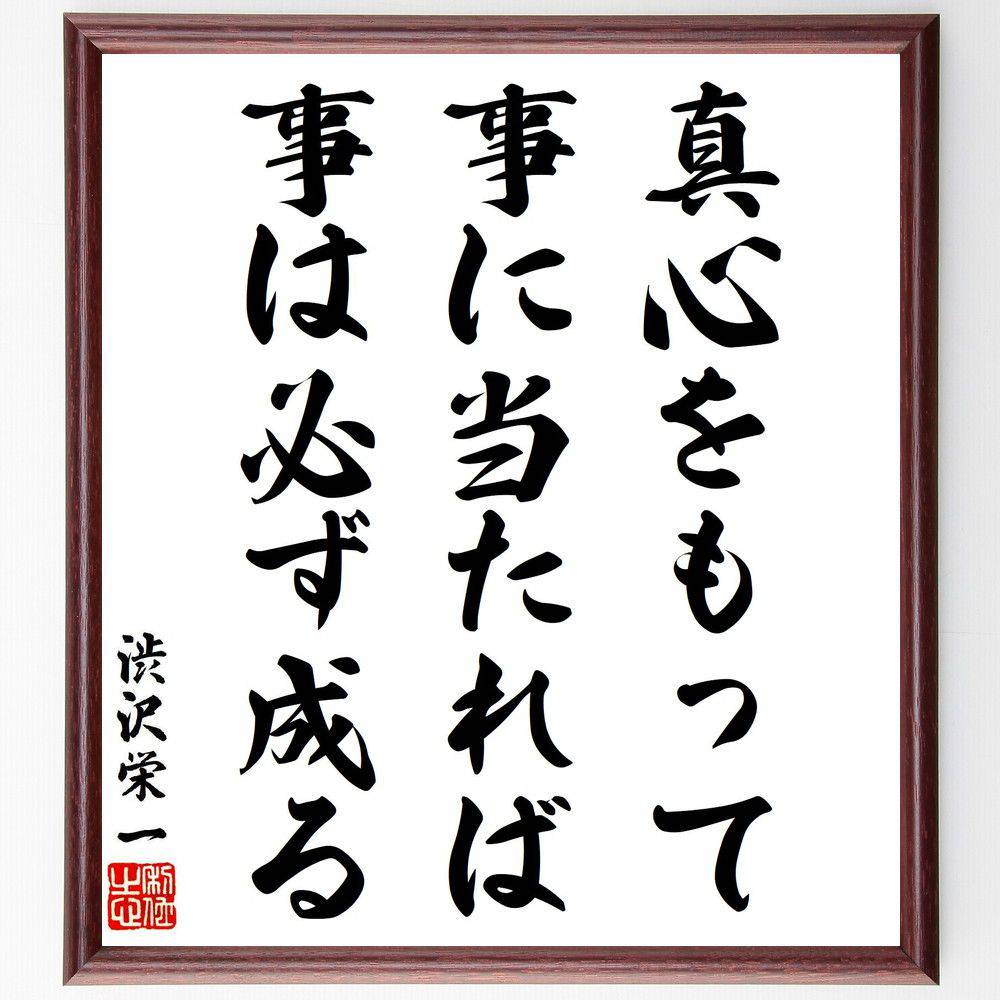 真心をもって
事に当たれば
事は必ず成る
渋沢栄一